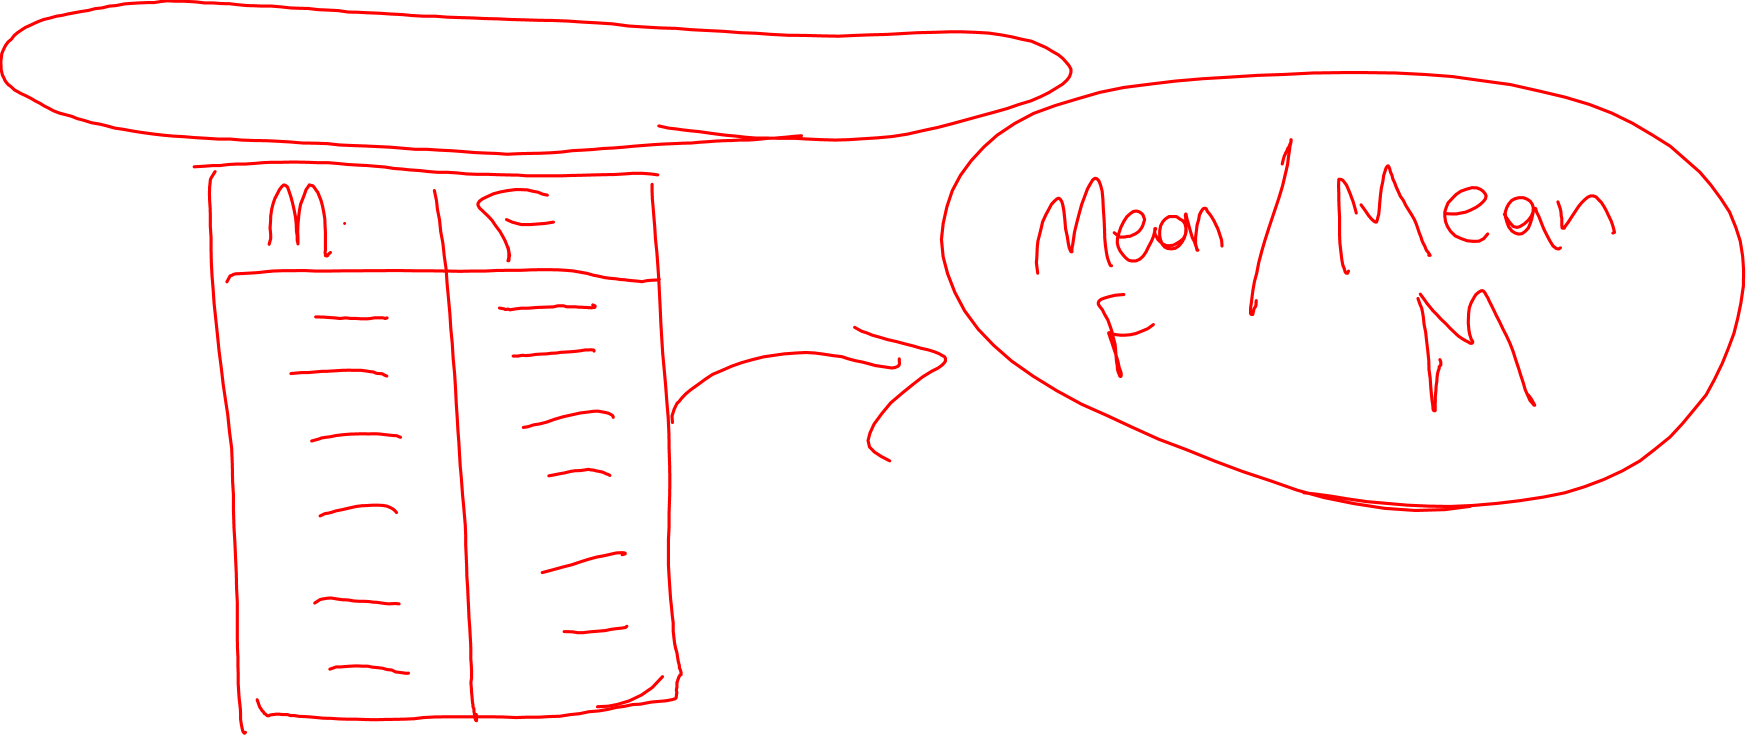 M. F
Mean / Mean
F M